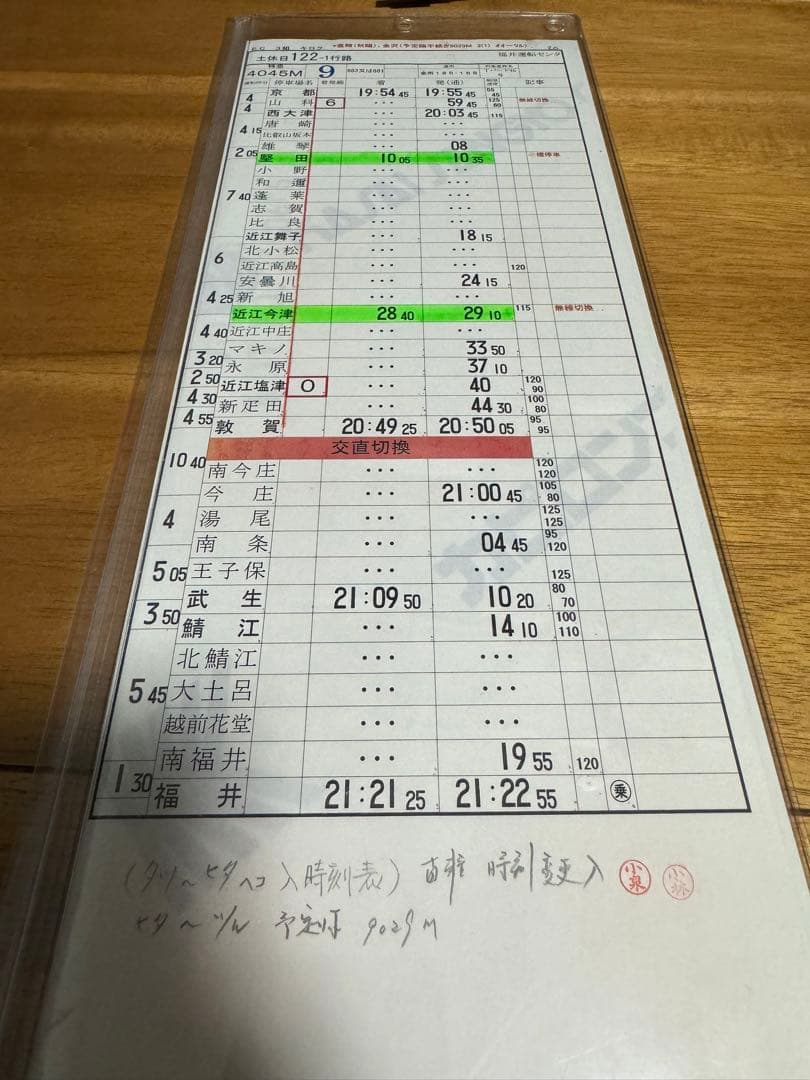 土休日 122-1行路 福井運転センタ
特急 4045M 9
停車場名 着 発(通) 記事
京都 19:54 45 19:55 45
4 山科 6 ・・・ 59 45 125 無線切換
4 西大津 ・・・ 20:03 45 115
唐崎 ・・・ ・・・
4 15 比叡山坂本 ・・・ ・・・
雄琴 ・・・ 08
2 05 堅田 10 05 10 35
小野 ・・・ ・・・
和邇 ・・・ ・・・
7 40 蓬莱 ・・・ ・・・
志賀 ・・・ ・・・
比良 ・・・ ・・・
近江舞子 ・・・ 18 15
6 北小松 ・・・ ・・・
近江高島 ・・・ ・・・ 120
安曇川 ・・・ 24 15
4 25 新旭 ・・・ ・・・
近江今津 28 40 29 10 115 無線切換
4 40 近江中庄 ・・・ ・・・
マキノ ・・・ 33 50
3 20 永原 ・・・ 37 10
2 50 近江塩津 O ・・・ 40 120 90
4 30 新疋田 ・・・ 44 30 100 80
4 55 敦賀 20:49 25 20:50 05 95 95
交直切換
10 40 南今庄 ・・・ ・・・ 120 120
今庄 ・・・ 21:00 45 105 80
4 湯尾 ・・・ ・・・ 125 125
南条 ・・・ 04 45 95 120
5 05 王子保 ・・・ ・・・ 125
武生 21:09 50 10 20 80 70
3 50 鯖江 ・・・ 14 10 100 110
北鯖江 ・・・ ・・・
5 45 大土呂 ・・・ ・・・
越前花堂 ・・・ ・・・
南福井 ・・・ 19 55 120
1 30 福井 21:21 25 21:22 55 乗
(タツ〜ヒタヘコ入時刻表) 時刻変更入 小泉 小林
ヒタ〜ツル 予定臨 9029M